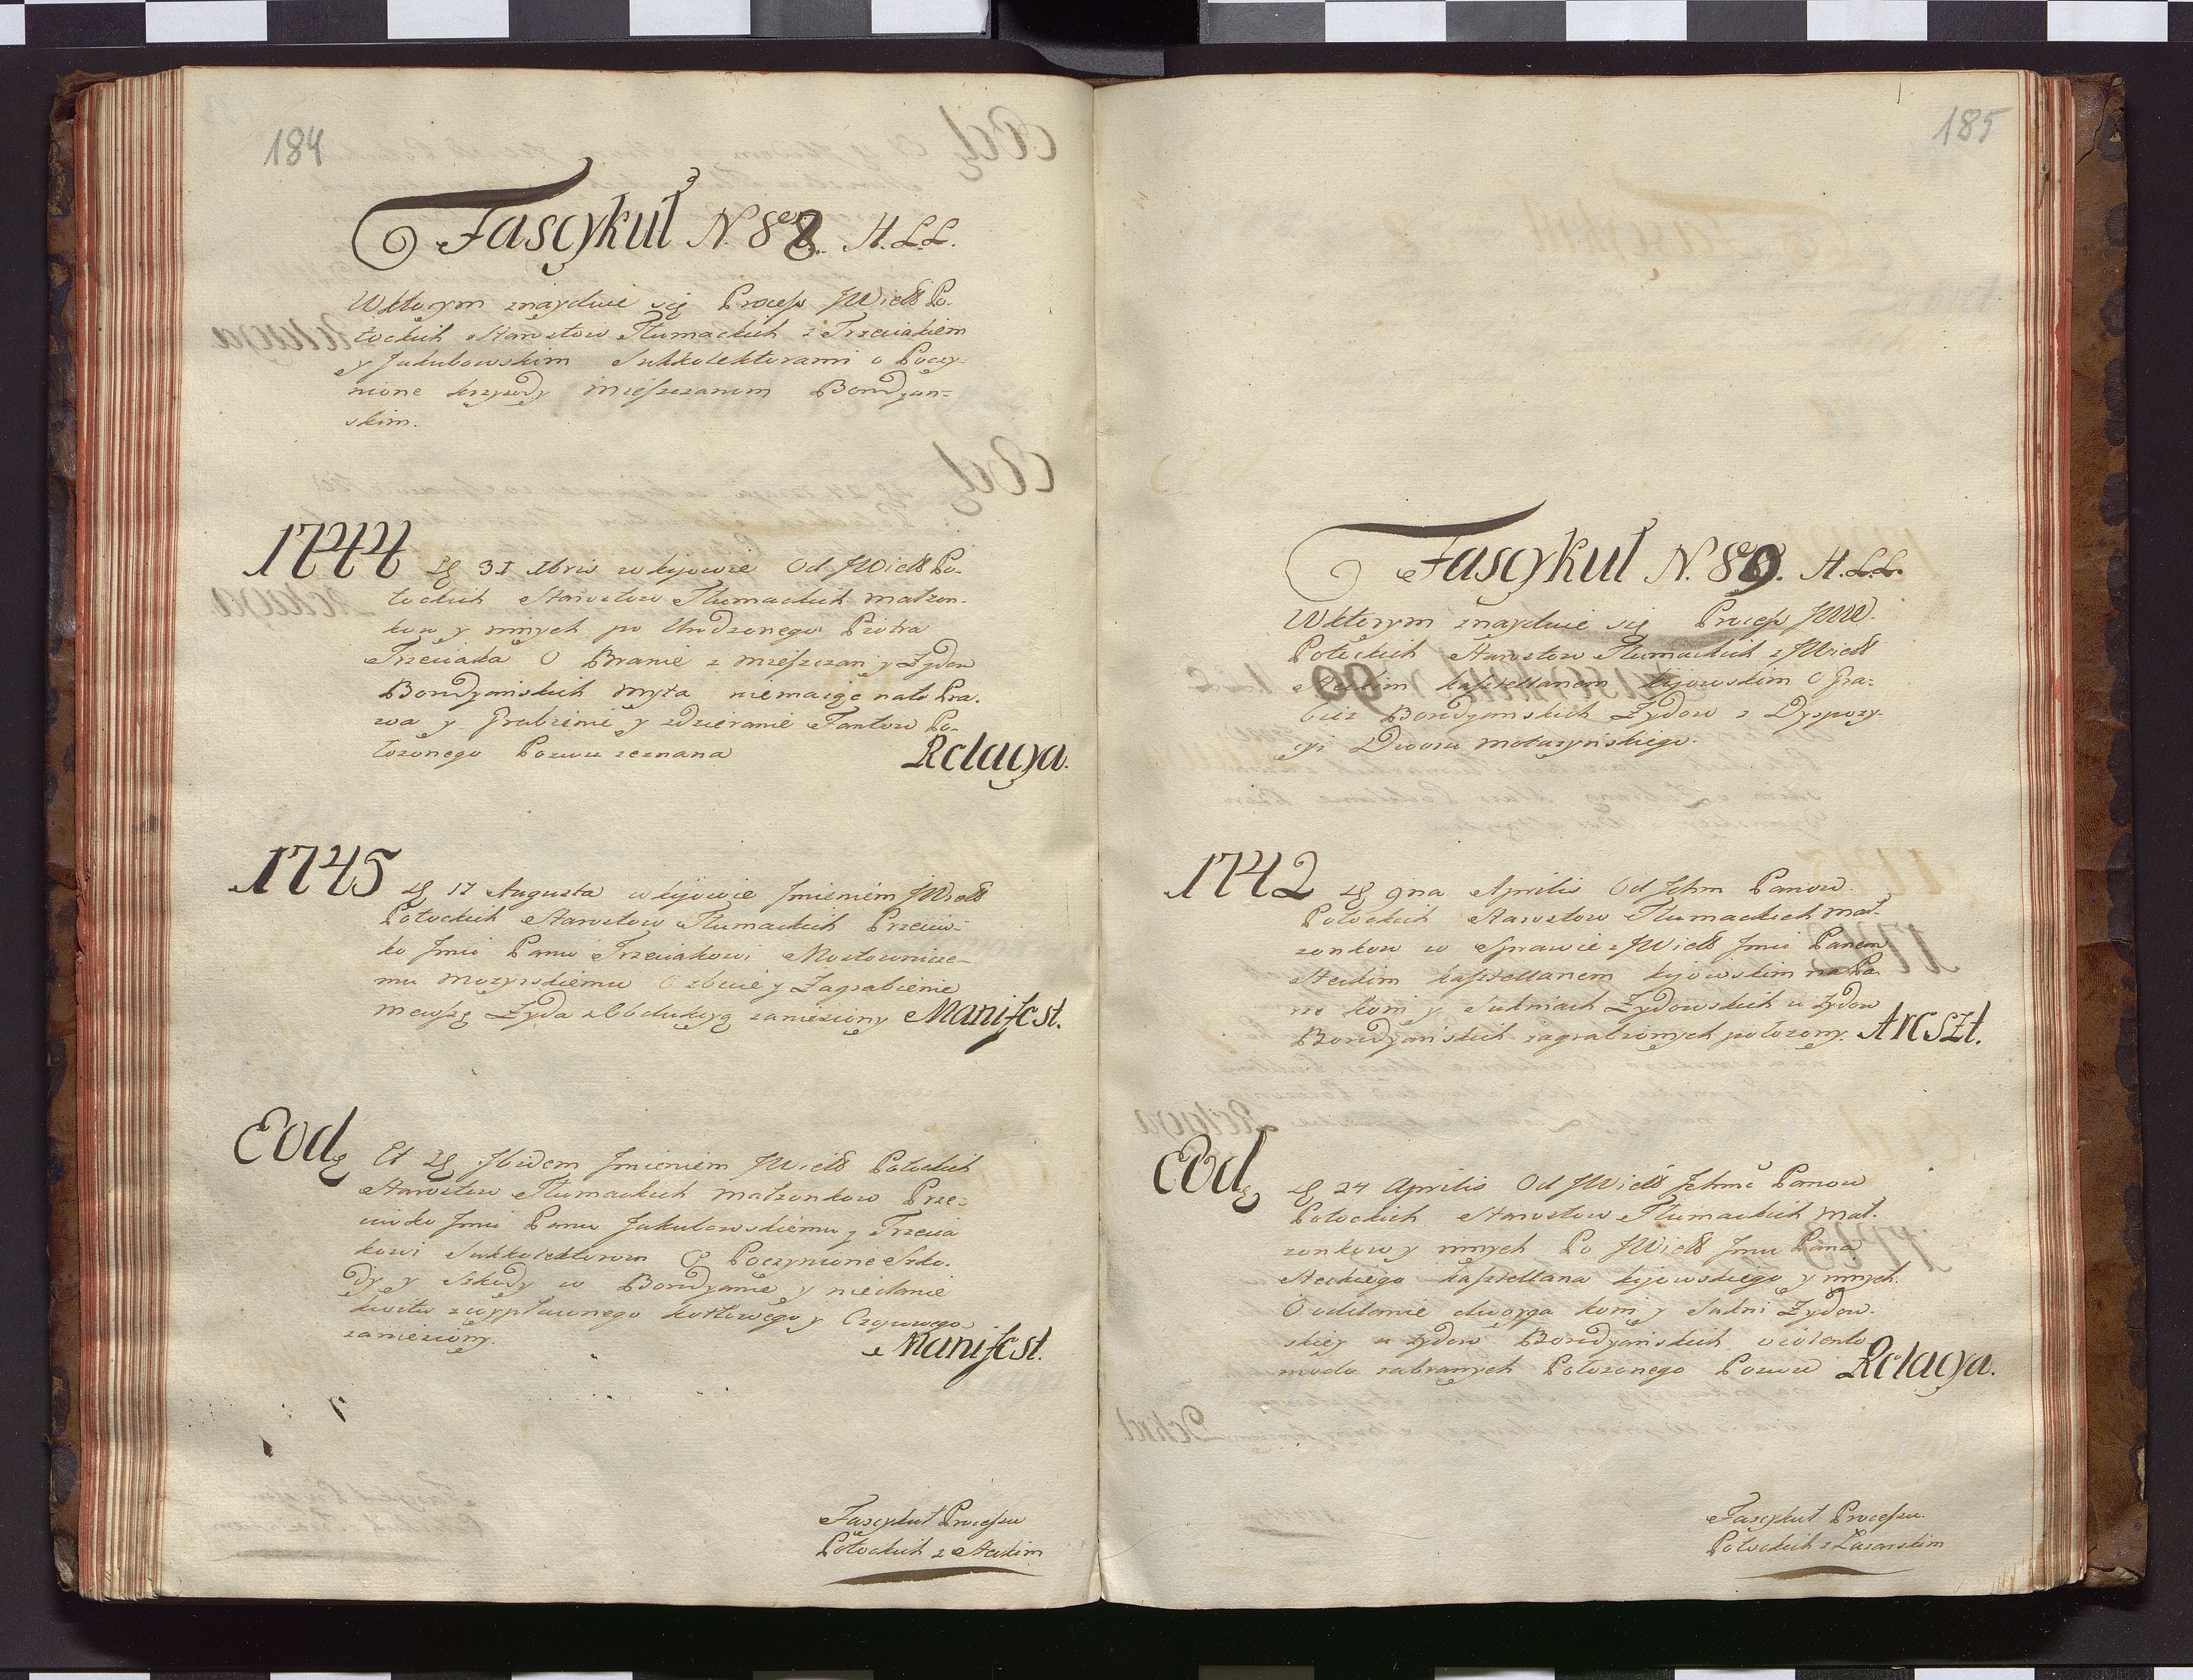 184
Fascykuł N. 88. H. LL.
Wktorym znayduie się Process JWielb Po-
tockich Starostow Tłumackich z Trzeciakiem
y Jakubowskim Subkolektorami o Poczy-
nione krzywdy Mieszczanom Borodyan-
skim.
1744 d 31 Xbris w kijowie Od JWielb Po-
tockich Starostow Tłumackich małzon-
kow y innych po Urodzonego Piotra
Trzeciaka O Branie z mieszczan y Zydow
Borodyańskich myta niemaiąc nato Pra-
wa y Grabienie y zdzieranie Fantow Po-
łozonego Pozwu zeznana Relacya.
1745 d 17 Augusta w kijowie Jmieniem JWielb
Potockich Starostow Tłumackich Przeciw-
ko Jmci Panu Trzeciakowi Mostownicze-
mu Mozyrskiemu O zbicie y Zagrabienie
Zyda z Obdukcyą zaniesiony Manifest.
Eod Et d Ibidem Jmieniem JWielb Potockich
Starostow Tłumackich małzonkow Prze-
ciwko Jmci Panu Jakubowskiemu y Trzecia
kowi Subkolektorom O Poczynione Szko-
dy y Szkody w Borodyance y niedanie
kwitu z wypłaconego kotłowego y Czopowego
zaniesiony. Manifest.
Fascykuł Processu
Potockich z Steckim
185
Fascykuł N. 89. H. LL.
Wktorym znayduie się Process JWW.
Potockich Starostow Tłumackich z JWielb
Steckim kasztellanem kijowskim O Gra-
biez Borodyanskich Zydow z Dyspozy-
cyi Dworu motuzyńskiego.
1742 d 9na Aprilis Od Jchm Panow
Potockich Starostow Tłumackich Mał-
zonkow w Sprawie z JWielb Jmci Panem
Steckim kasztellanem kijowskim na Pa-
ro koni y Sukniach Zydowskich u Zydow
Borodyańskich zagrabionych połozony. Areszt.
Eod d 24 Aprilis Od JWielb Jchmć Panow
Potockich Starostow Tłumackich Mał-
zonkow y innych Po JWielb Jmci Pana
Steckiego kasztellana kijowskiego y innych
O oddanie dwoyga koni y Sukni Zydow-
skiey u zydow Borodyańskich violento
modo zabranych Połozonego Pozwu Relacya.
Fascykuł Processu
Potockich z Łazarskim